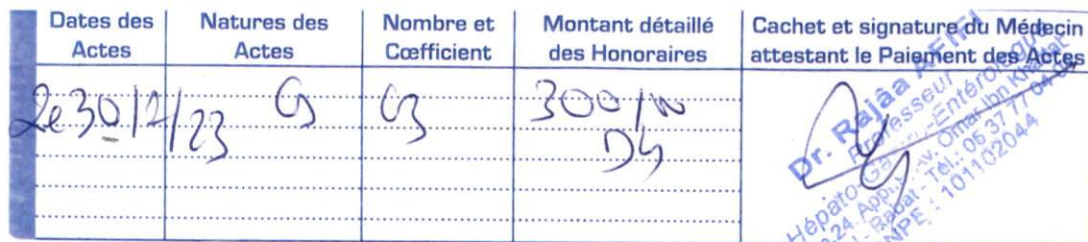 Dates des Actes
Natures des Actes
Nombre et Cœfficient
Montant détaillé des Honoraires
Cachet et signature du Médecin attestant le Paiement des Actes
Le 30/12/23
300
Dr. Rajâa AFIFI
Professeur
Hépato-Ga -Entérologue
24, App Av. Omar Ibn Khattab
Rabat - Tél.: 05 37 77 04
INPE : 101102044